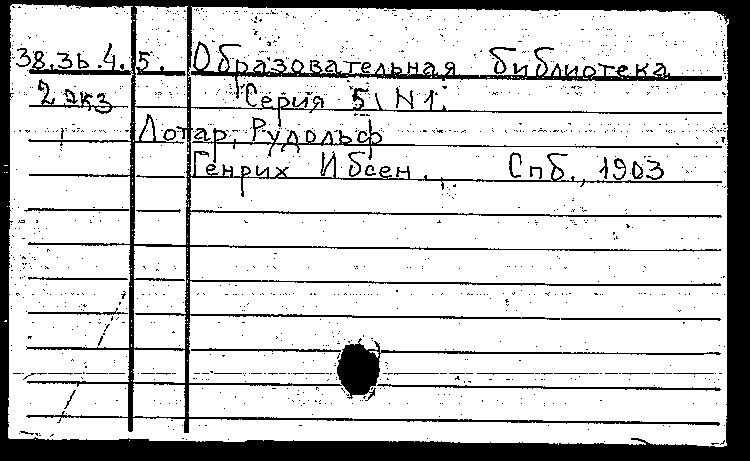 38.36.4.5. Образовательная библиотека
2 экз Серия 5, N 1.
Лотар, Рудольф
Генрих Ибсен., Спб., 1903